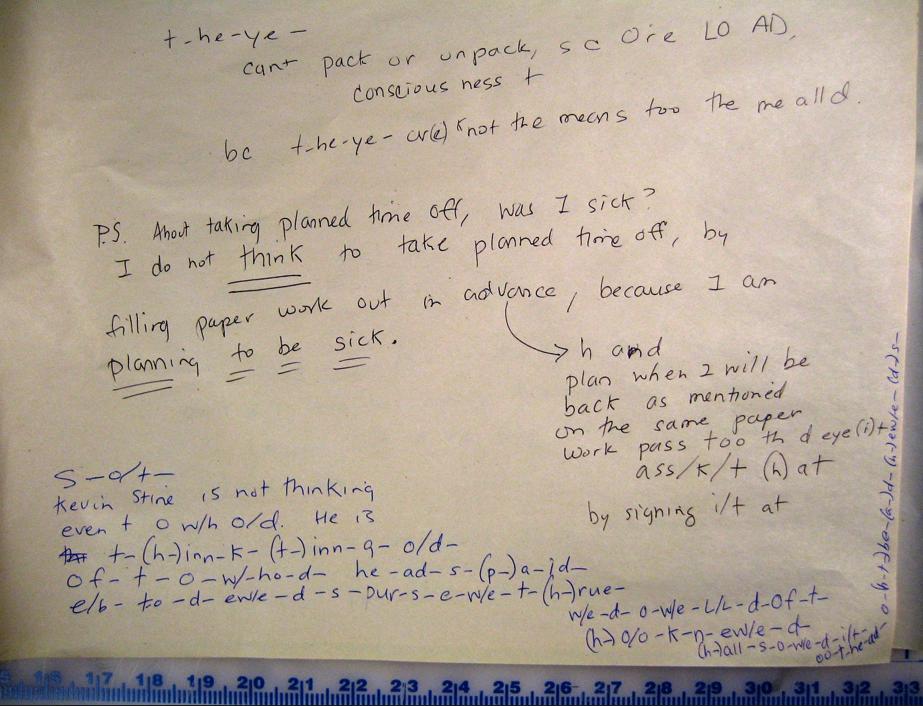 t-he-ye-
cant pack or unpack, sc Ore LO AD,
conscious ness t
bc t-he-ye- ar(e) not the means too the me all d.
P.S. About taking planned time off, was I sick?
I do not think to take planned time off, by
filling paper work out in advance, because I am
planning to be sick.
h and
plan when 2 will be
back as mentioned
on the same paper
work pass too th d eye(i)t
ass/k/t (h) at
by signing i/t at
S-o/t-
Kevin Stine is not thinking
even t o w/h o/d. He is
t-(h-)inn-k-(t-)inn-g-o/d-
Of-t-o-w/-ho-d- he-ad-s-(p-)a-id-
e/b-to-d-ew/e-d-s-pur-s-e-w/e-t-(h-)rue-
w/e-d-o-w/e-L/L-d-Of-t-
(h-)o/o-k-n-ew/e-d-
(h-)all-s-o-w/e-d-i/t-
oo-t-he-ad-
1|7 1|8 1|9 2|0 2|1 2|2 2|3 2|4 2|5 2|6 2|7 2|8 2|9 3|0 3|1 3|2 3|3